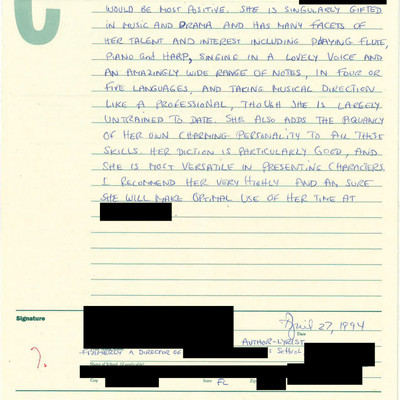 WOULD BE MOST POSITIVE. SHE IS SINGULARLY GIFTED
IN MUSIC AND DRAMA AND HAS MANY FACETS OF
HER TALENT AND INTEREST INCLUDING PLAYING FLUTE,
PIANO and HARP, SINGING IN A LOVELY VOICE AND
AN AMAZINGLY WIDE RANGE OF NOTES, IN FOUR OR
FIVE LANGUAGES, AND TAKING MUSICAL DIRECTION
LIKE A PROFESSIONAL, THOUGH SHE IS LARGELY
UNTRAINED TO DATE. SHE ALSO ADDS THE PIQUANCY
OF HER OWN CHARMING PERSONALITY TO ALL THESE
SKILLS. HER DICTION IS PARTICULARLY GOOD, AND
SHE IS MOST VERSATILE IN PRESENTING CHARACTERS.
I RECOMMEND HER VERY HIGHLY AND AM SURE
SHE WILL MAKE OPTIMAL USE OF HER TIME AT
.
Signature
April 27, 1994
Date
AUTHOR-LYRIST
?. FORMERLY A DIRECTOR OF 'S SCHOOL
Name of School (if applicable)
City State FL Zip